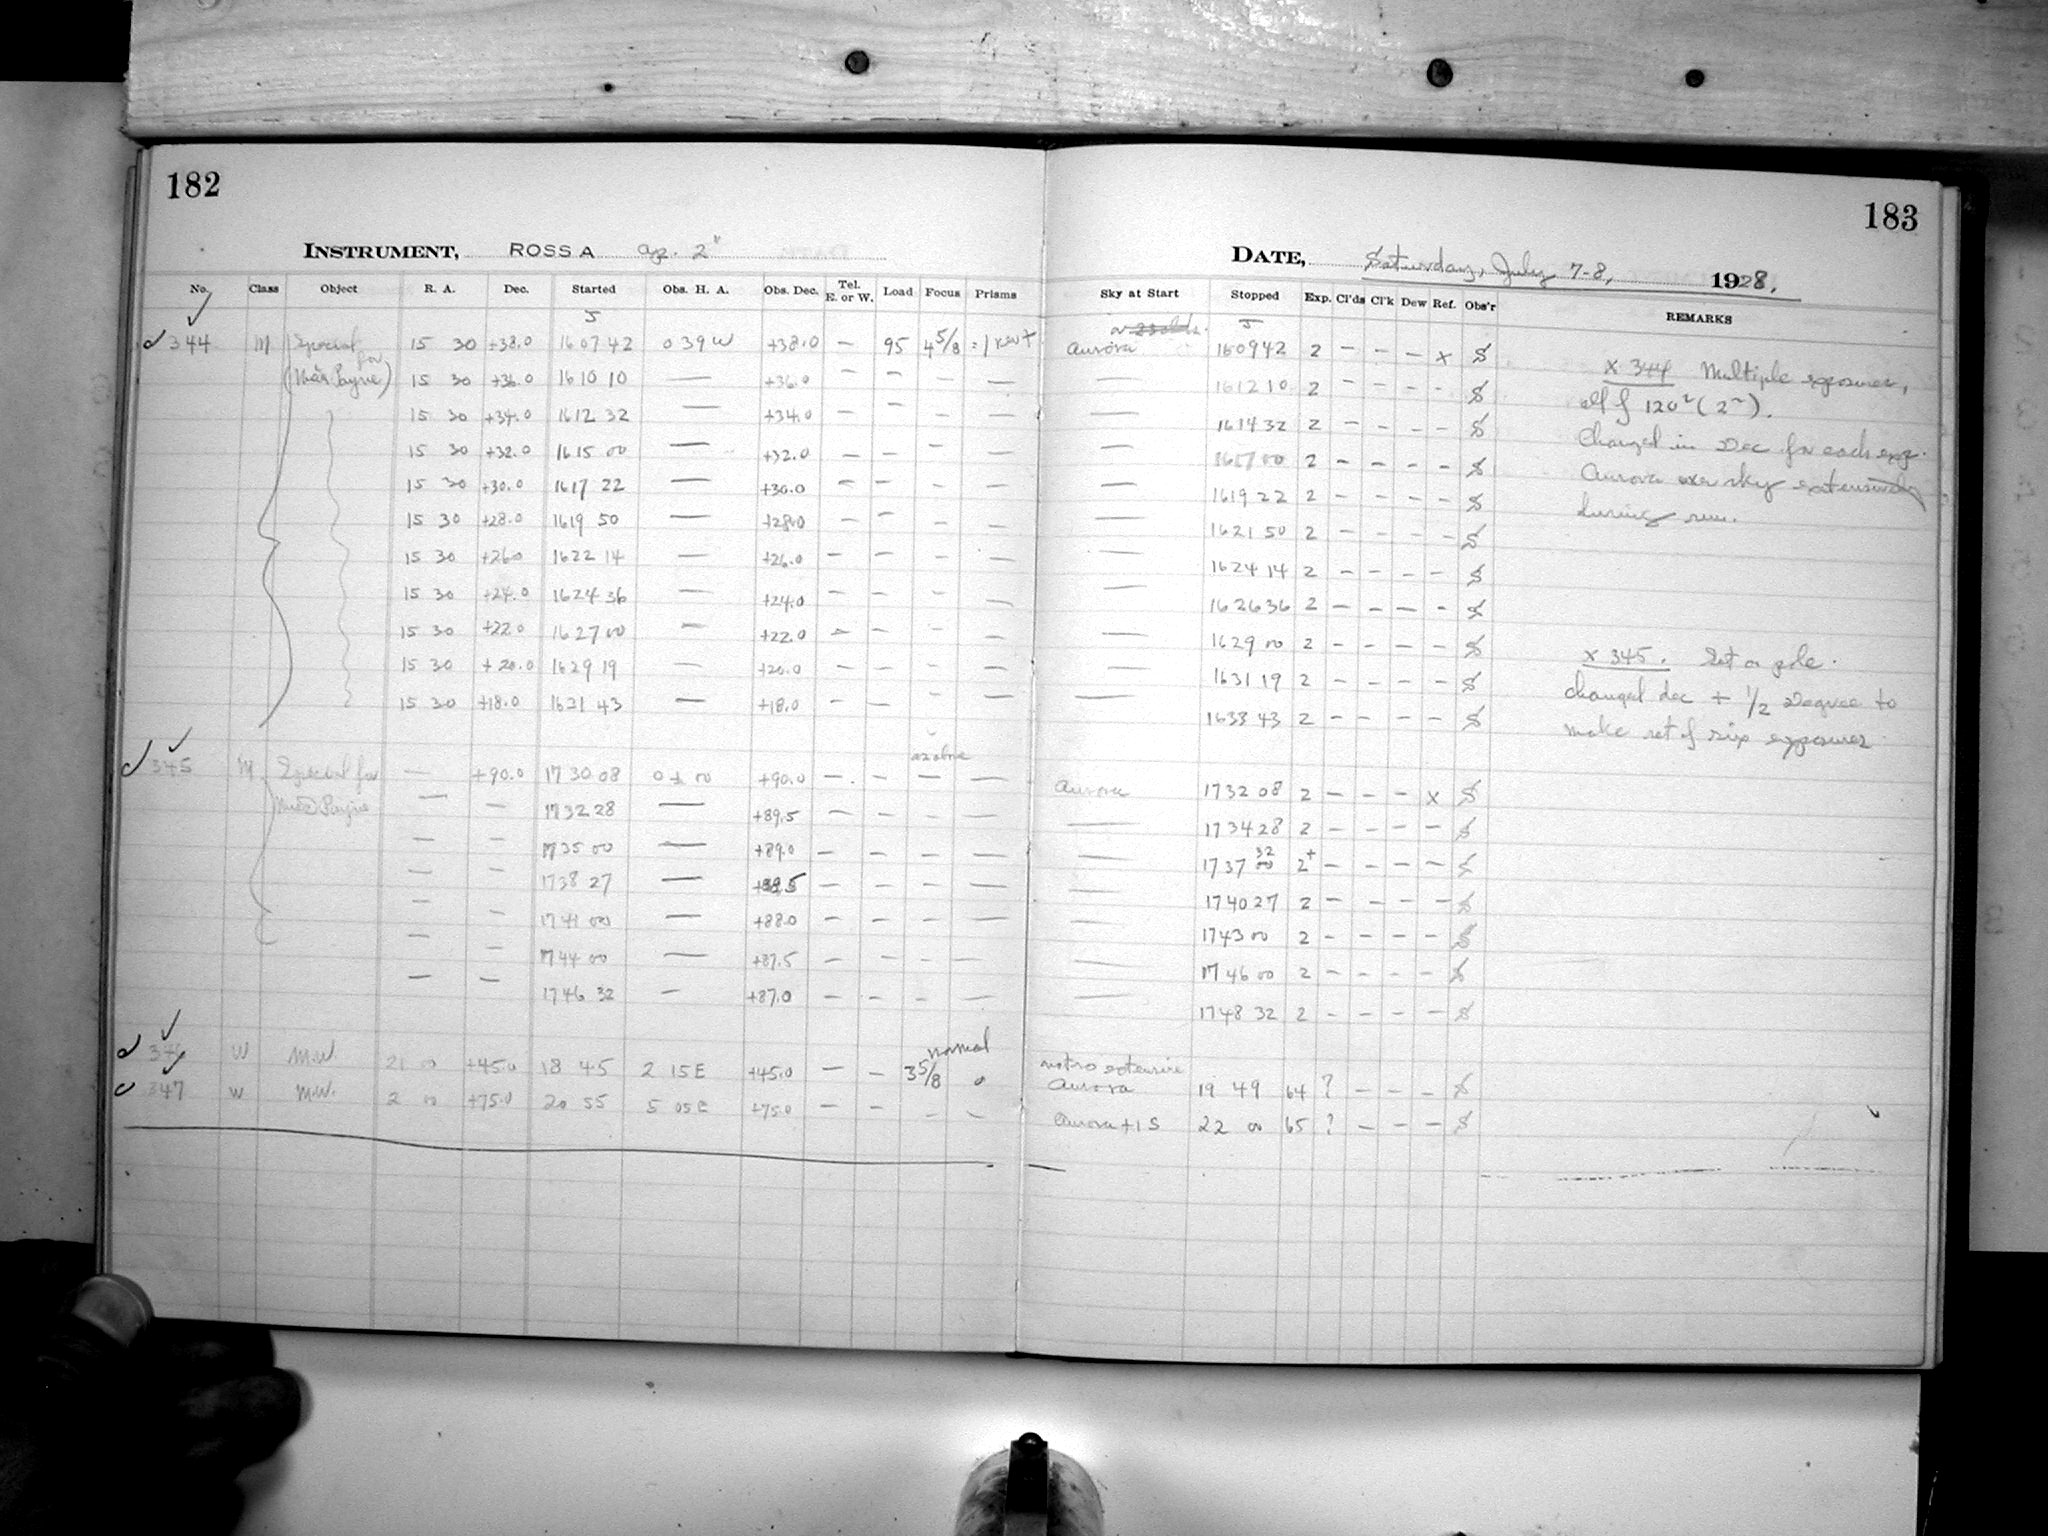 182
INSTRUMENT, ROSS A ap. 2"
No. Class Object R. A. Dec. Started Obs. H. A. Obs. Dec. Tel. E. or W. Load Focus Prisms
344 M Special for 15 30 +38.0 16 07 42 0 39 W +38.0 — 95 4 5/8
(Miss Payne) 15 30 +36.0 16 10 10 — +36.0 — — — —
15 30 +34.0 16 12 32 — +34.0 — —
15 30 +32.0 16 15 00 — +32.0 — — — —
15 30 +30.0 16 17 22 — +30.0 — — — —
15 30 +28.0 16 19 50 — +28.0 — — — —
15 30 +26.0 16 22 14 — +26.0 — — — —
15 30 +24.0 16 24 36 — +24.0 — — — —
15 30 +22.0 16 27 00 — +22.0 — — — —
15 30 +20.0 16 29 19 — +20.0 — — — —
15 30 +18.0 16 31 43 — +18.0 — — — —
as above
345 M Special for — +90.0 17 30 08 0 ± 00 +90.0 — — — —
Miss Payne — — 17 32 28 — +89.5 — — — —
— — 17 35 00 — +89.0 — — — —
— — 17 38 27 — — — — —
— — 17 41 00 — +88.0 — — — —
— — 17 44 00 — +87.5 — — — —
— — 17 46 32 — +87.0 — — — —
normal
346 W M.W. 21 00 +45.0 18 45 2 15 E +45.0 — — 3 5/8 0
347 W M.W. 2 00 +75.0 20 55 5 05 E +75.0 — — — —
183
DATE, Saturday, July 7-8, 1928,
Sky at Start Stopped Exp. Cl'ds Cl'k Dew Ref. Obs'r REMARKS
Aurora 16 09 42 2 — — — x S
— 16 12 10 2 — — — — S
— 16 14 32 2 — — — — S
— 16 17 00 2 — — — — S
— 16 19 22 2 — — — — S
— 16 21 50 2 — — — — S
— 16 24 14 2 — — — — S
— 16 26 36 2 — — — — S
— 16 29 00 2 — — — — S
— 16 31 19 2 — — — — S
— 16 33 43 2 — — — — S
Aurora 17 32 08 2 — — — x S
— 17 34 28 2 — — — — S
— 17 37 32 2+ — — — — S
— 17 40 27 2 — — — — S
— 17 43 00 2 — — — — S
— 17 46 00 2 — — — — S
— 17 48 32 2 — — — — S
not so extensive
Aurora 19 49 64 ? — — — S
Aurora + 1 S 22 00 65 ? — — — S
x 344 Multiple exposures,
all of 120s (2m).
Changed in Dec for each exp.
Aurora over sky extensively
during run.
x 345. Set on pole.
changed dec + 1/2 Degree to
make set of six exposures